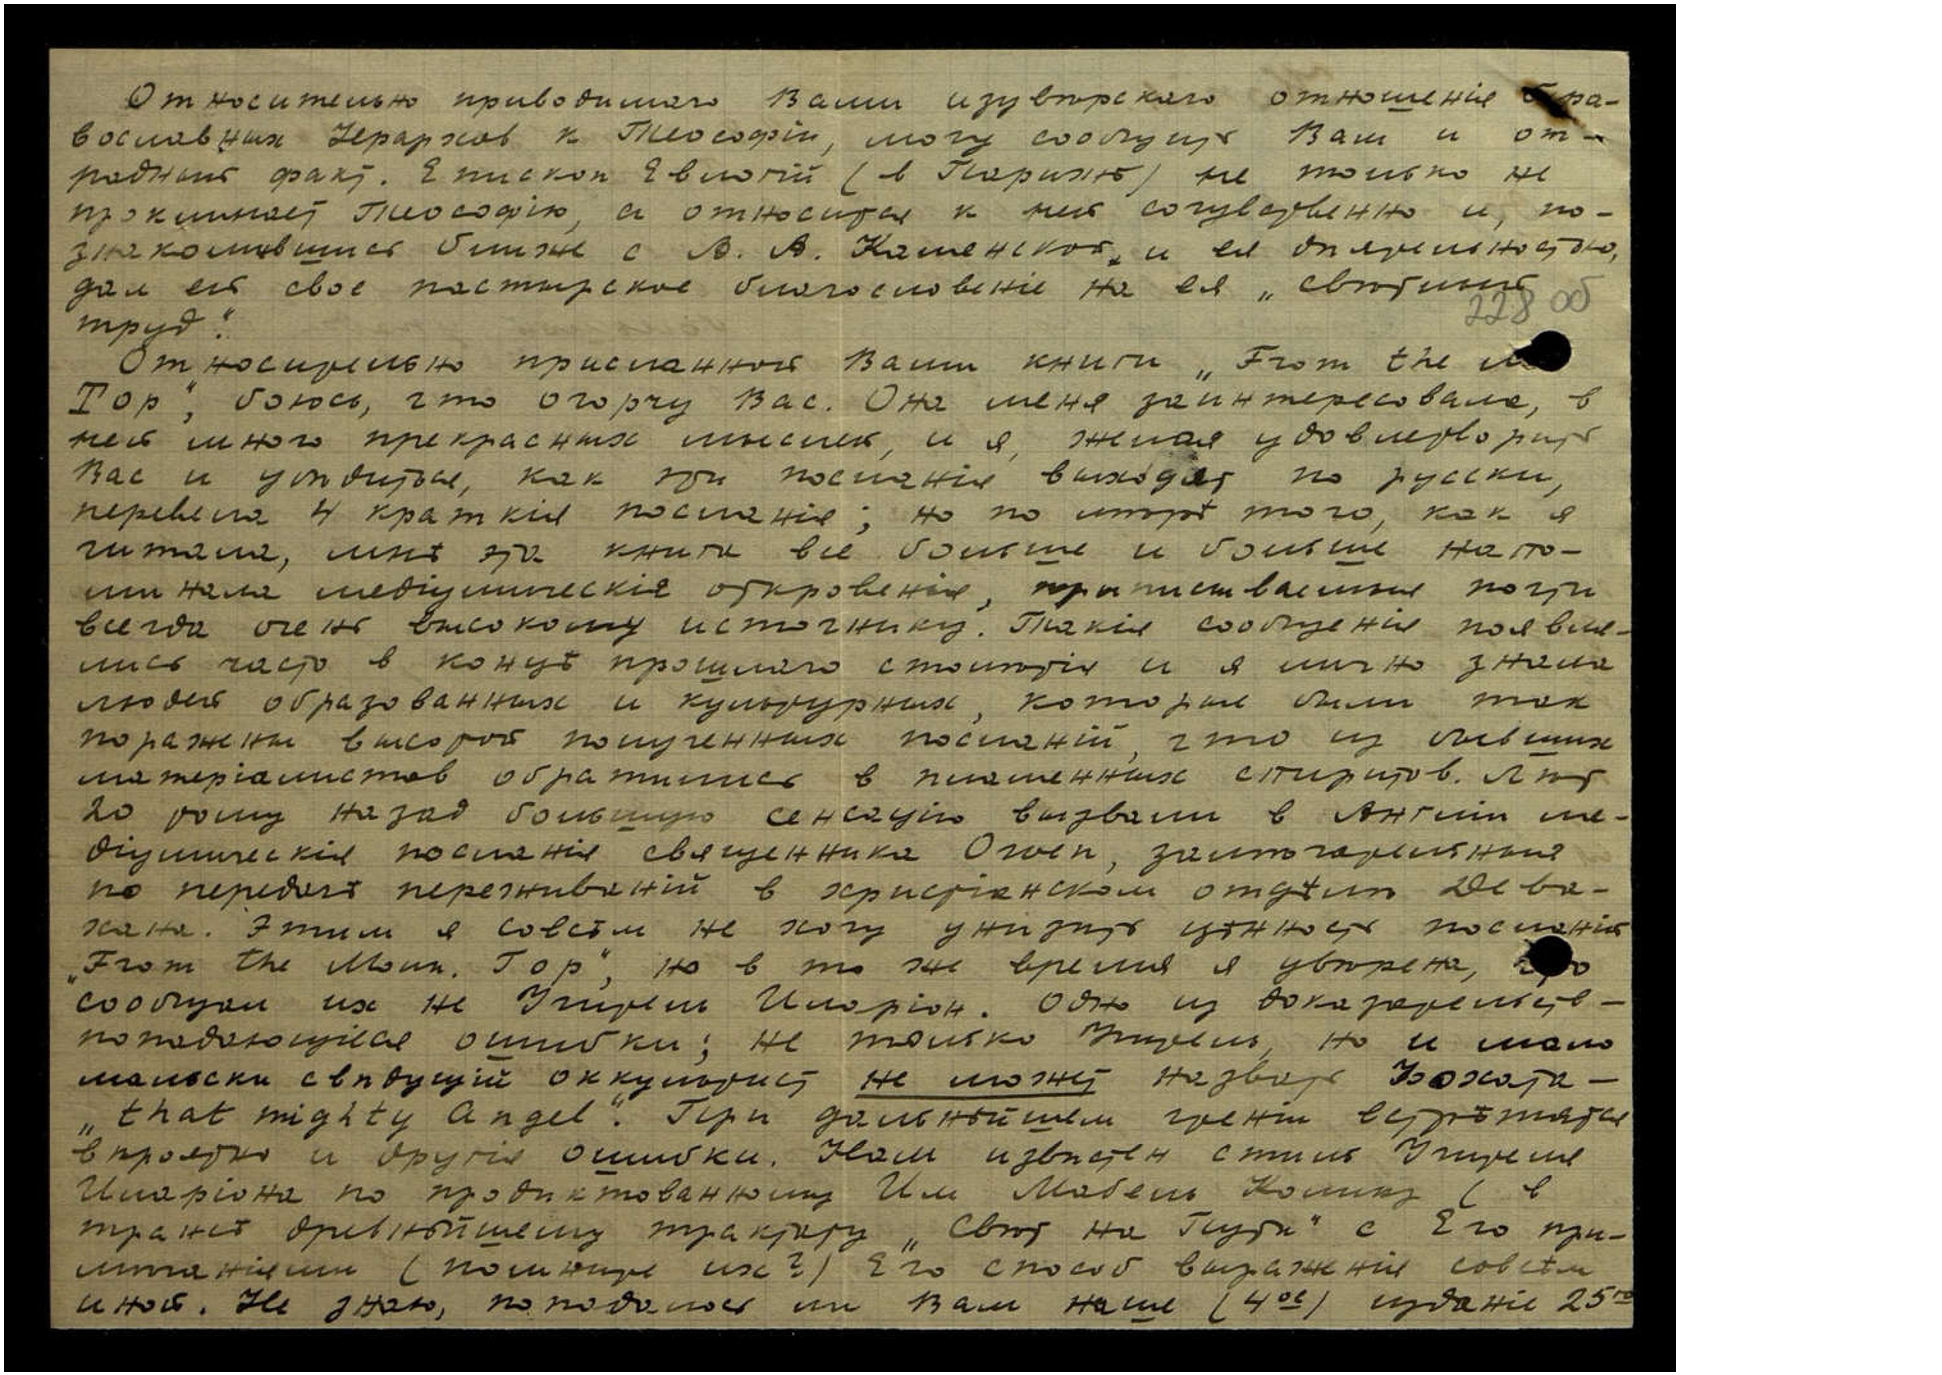 Относительно приводимаго Вами изувѣрскаго отношенія пра-
вославных Іерархов к Теософіи, могу сообщить Вам и от-
радный факт. Епископ Евлогій (в Парижѣ) не только не
проклинает Теософію, а относится к ней сочувственно и, по-
знакомившись ближе с А. А. Каменской и ея дѣятельностью,
дал ей свое пастырское благословеніе на ея „свѣтлый
труд".
228 об
Относительно присланной Вами книги „From the
Top", боюсь, что огорчу Вас. Она меня заинтересовала, в
ней много прекрасных мыслей, и я, желая удовлетворить
Вас и убѣдиться, как эти посланія выходят по русски,
перевела 4 краткія посланія; но по мѣрѣ того, как я
читала, мнѣ эта книга всё больше и больше напо-
минала медіумическія откровенія, приписываемыя почти
всегда очень высокому источнику. Такія сообщенія появля-
лись часто в концѣ прошлаго столѣтія и я лично знала
людей образованных и культурных, которые были так
поражены высотой полученных посланій, что из бывших
матеріалистов обратились в пламенных спиритов. Лѣт
20 тому назад большую сенсацію вызвали в Англіи ме-
діумическія посланія священника Owen, замѣчательныя
по передачѣ переживаній в христіанском отдѣлѣ Дева-
хана. Этим я совсѣм не хочу унизить цѣнность посланій
„From the Moun. Top", но в то же время я увѣрена, что
сообщал их не Учитель Иларіон. Одно из доказательств –
попадающіеся ошибки; не только Учитель, но и мало
мальски свѣдущій оккультист не может назвать Фохата –
„that mighty Angel". При дальнѣйшем чтеніи встрѣтятся
вѣроятно и другія ошибки. Нам извѣстен стиль Учителя
Иларіона по продиктованному Им Мабель Коллинз (в
трансѣ древнѣйшему трактату „Свѣт на Пути" с Его при-
мѣчаніями (помните их?) Его способ выраженія совсѣм
иной. Не знаю, попадалось ли Вам наше (4ое) изданіе 25го